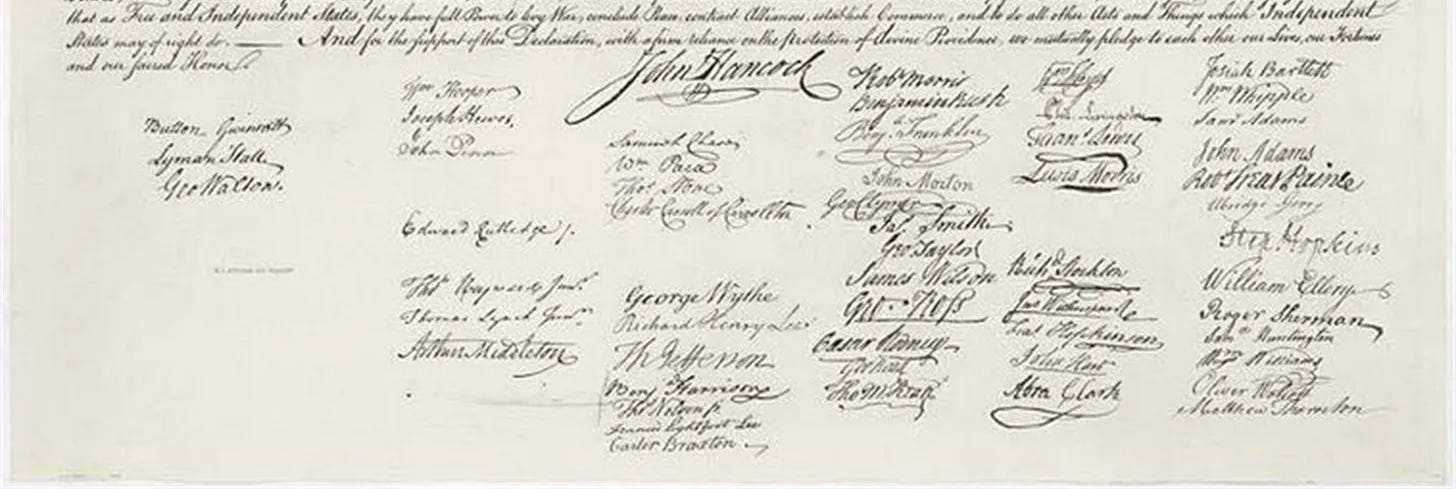 that as Free and Independent States, they have full Power to levy War, conclude Peace, contract Alliances, establish Commerce, and to do all other Acts and Things which Independent
States may of right do. — And for the support of this Declaration, with a firm reliance on the Protection of divine Providence, we mutually pledge to each other our Lives, our Fortunes
and our sacred Honor.
Button Gwinnett
Lyman Hall
Geo Walton.
Wm Hooper
Joseph Hewes,
John Penn
Edward Rutledge /.
Thos Heyward Junr.
Thomas Lynch Junr.
Arthur Middleton
John Hancock
Samuel Chase
Wm Paca
Thos Stone
Charles Carroll of Carrollton
George Wythe
Richard Henry Lee
Th Jefferson
Benj Harrison
Thos Nelson jr.
Francis Lightfoot Lee
Carter Braxton
Robt Morris
Benjamin Rush
Benj. Franklin
John Morton
Geo Clymer
Jas. Smith
Geo. Taylor
James Wilson
Geo. Ross
Caesar Rodney
Geo Read
Tho M:Kean
Wm Floyd
Phil. Livingston
Frans. Lewis
Lewis Morris
Richd. Stockton
Jno Witherspoon
Fras. Hopkinson
John Hart
Abra Clark
Josiah Bartlett
Wm Whipple
Saml Adams
John Adams
Robt Treat Paine
Elbridge Gerry
Step. Hopkins
William Ellery
Roger Sherman
Saml Huntington
Wm Williams
Oliver Wolcott
Matthew Thornton